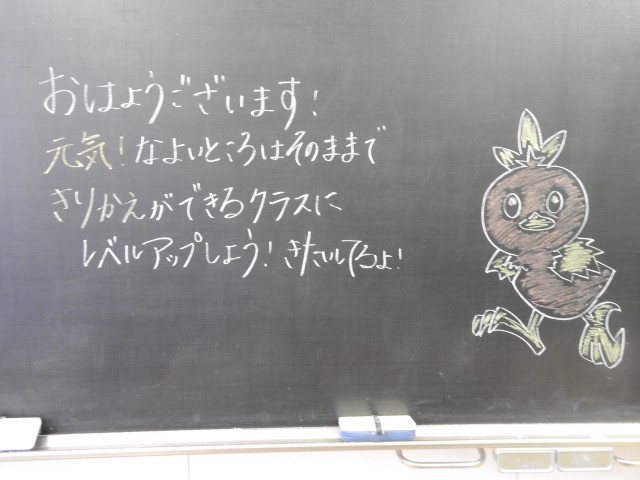 おはようございます!
元気!なよいところはそのままで
きりかえができるクラスに
レベルアップしよう!きたいしてるよ!